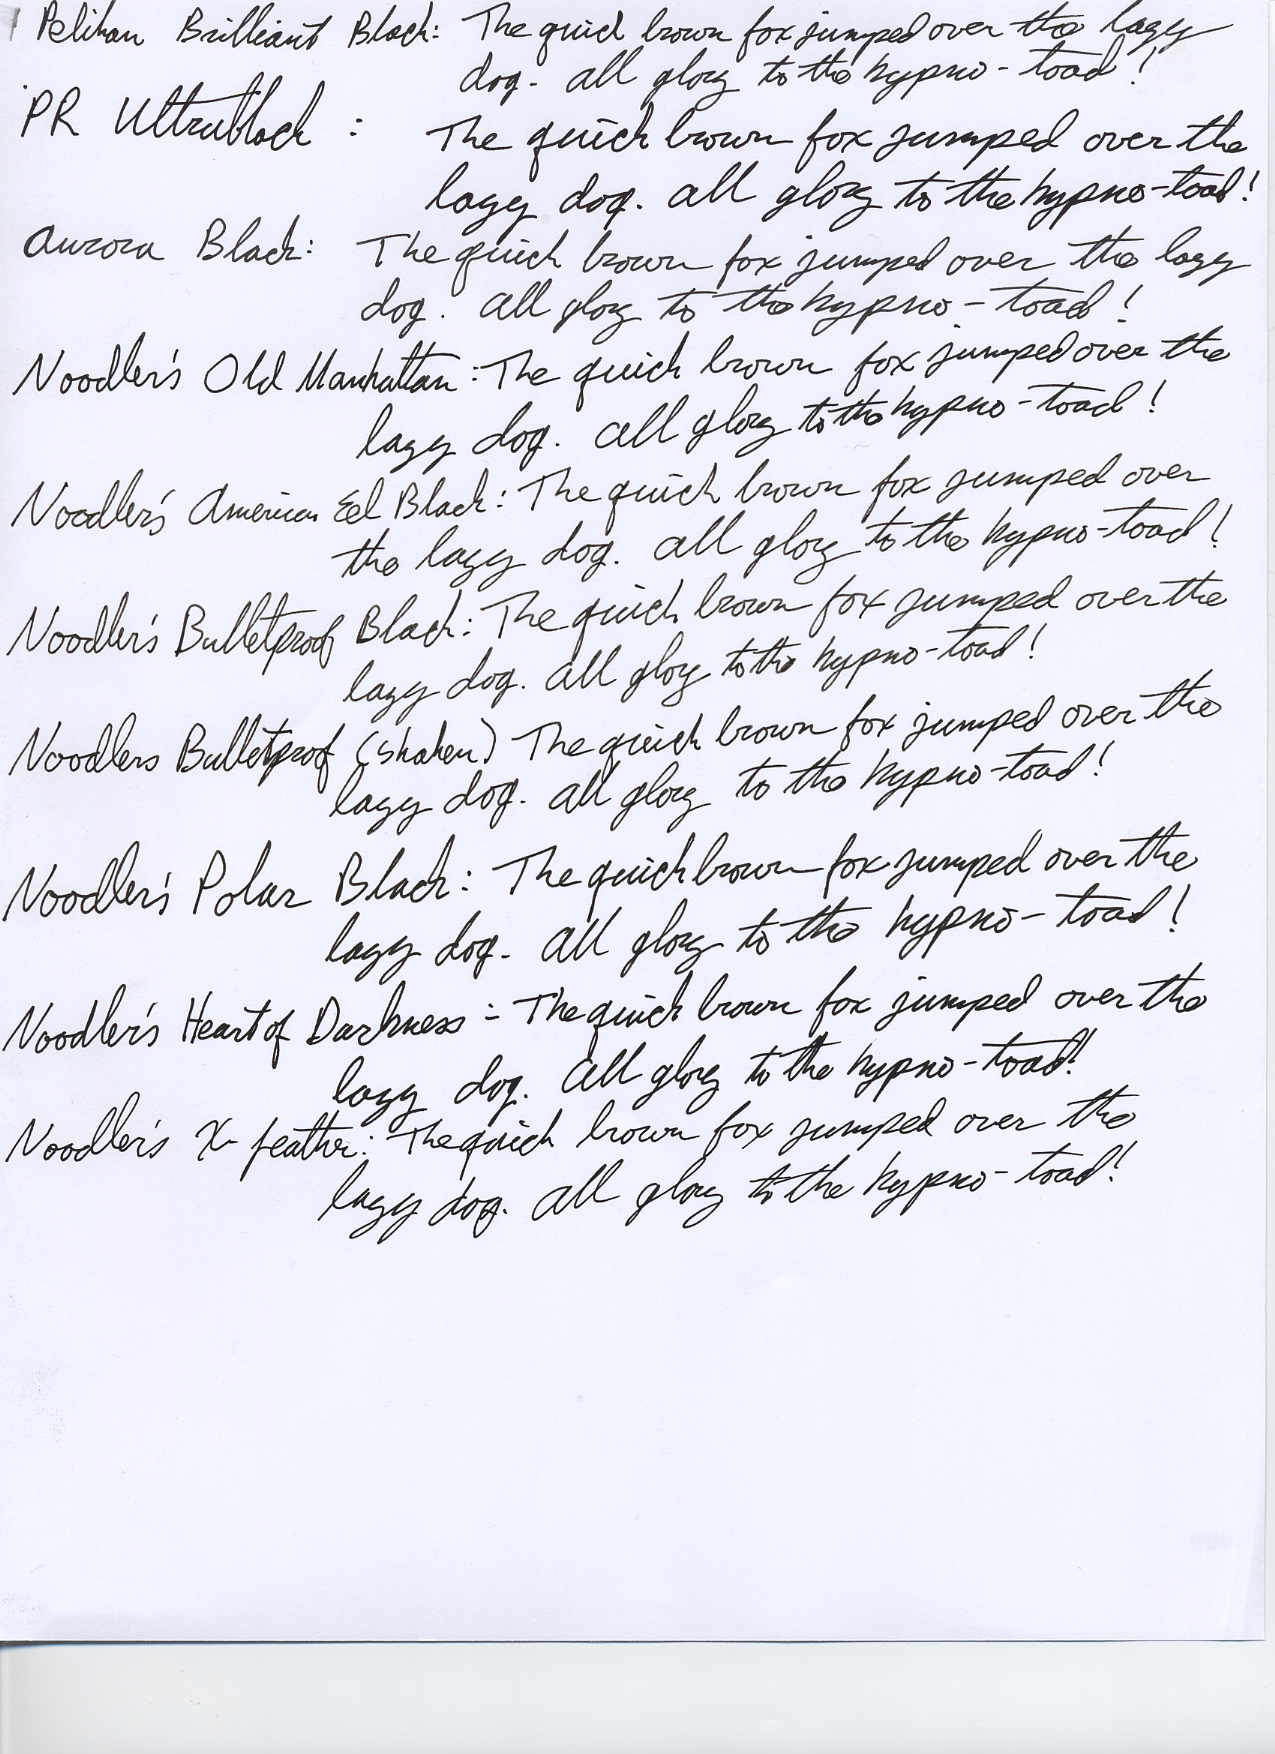 Pelikan Brilliant Black: The quick brown fox jumped over the lazy
dog. All glory to the hypno-toad!
PR Ultrablack : The quick brown fox jumped over the
lazy dog. All glory to the hypno-toad!
Aurora Black: The quick brown fox jumped over the lazy
dog. All glory to the hypno-toad!
Noodler's Old Manhattan: The quick brown fox jumped over the
lazy dog. All glory to the hypno-toad!
Noodler's American Eel Black: The quick brown fox jumped over
the lazy dog. All glory to the hypno-toad!
Noodler's Bulletproof Black: The quick brown fox jumped over the
lazy dog. All glory to the hypno-toad!
Noodlers Bulletproof (shaken) The quick brown fox jumped over the
lazy dog. All glory to the hypno-toad!
Noodler's Polar Black: The quick brown fox jumped over the
lazy dog. All glory to the hypno-toad!
Noodler's Heart of Darkness: The quick brown fox jumped over the
lazy dog. All glory to the hypno-toad!
Noodler's X-feather: The quick brown fox jumped over the
lazy dog. All glory to the hypno-toad!